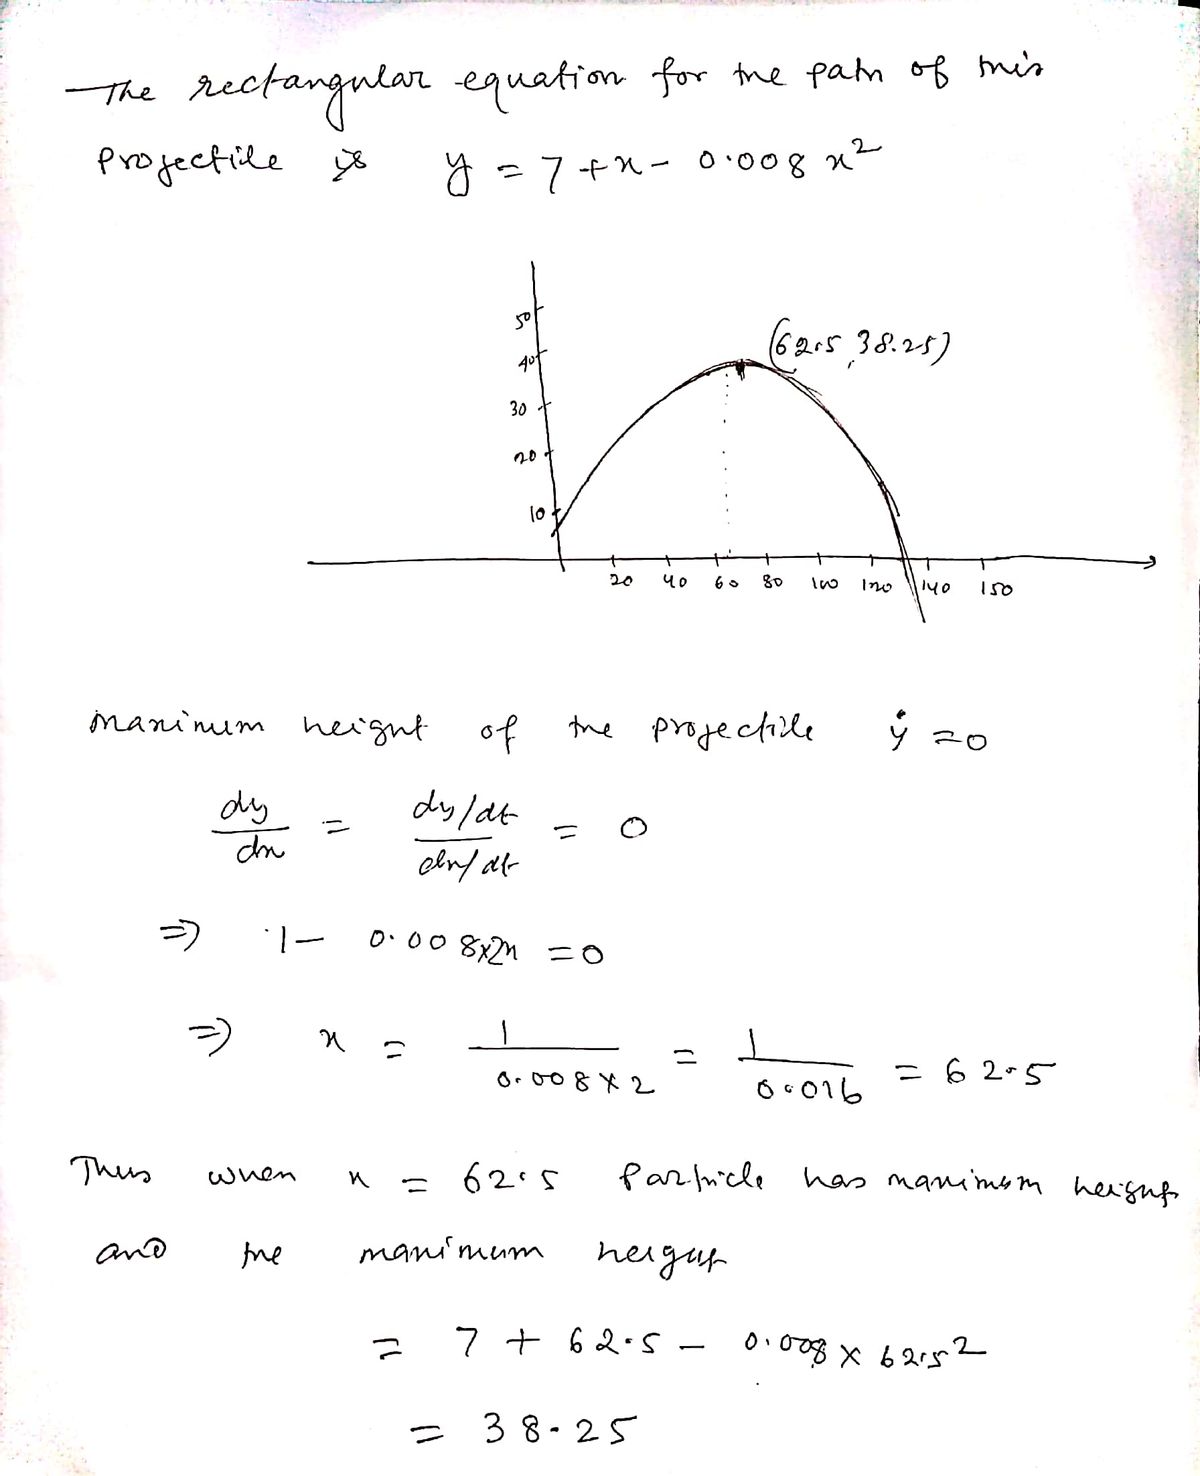 The rectangular equation for the path of this
Projectile is y = 7 + x - 0.008 x²
50
40
30
20
10
(62.5, 38.25)
20 40 60 80 100 120 140 150
maximum height of the projectile ẏ = 0
dy/dx = (dy/dt)/(dx/dt) = 0
⇒ 1 - 0.008×2x = 0
⇒ x = 1/(0.008 × 2) = 1/0.016 = 62.5
Thus when x = 62.5 Particle has maximum height
and the maximum height
= 7 + 62.5 - 0.008 × 62.5²
= 38.25